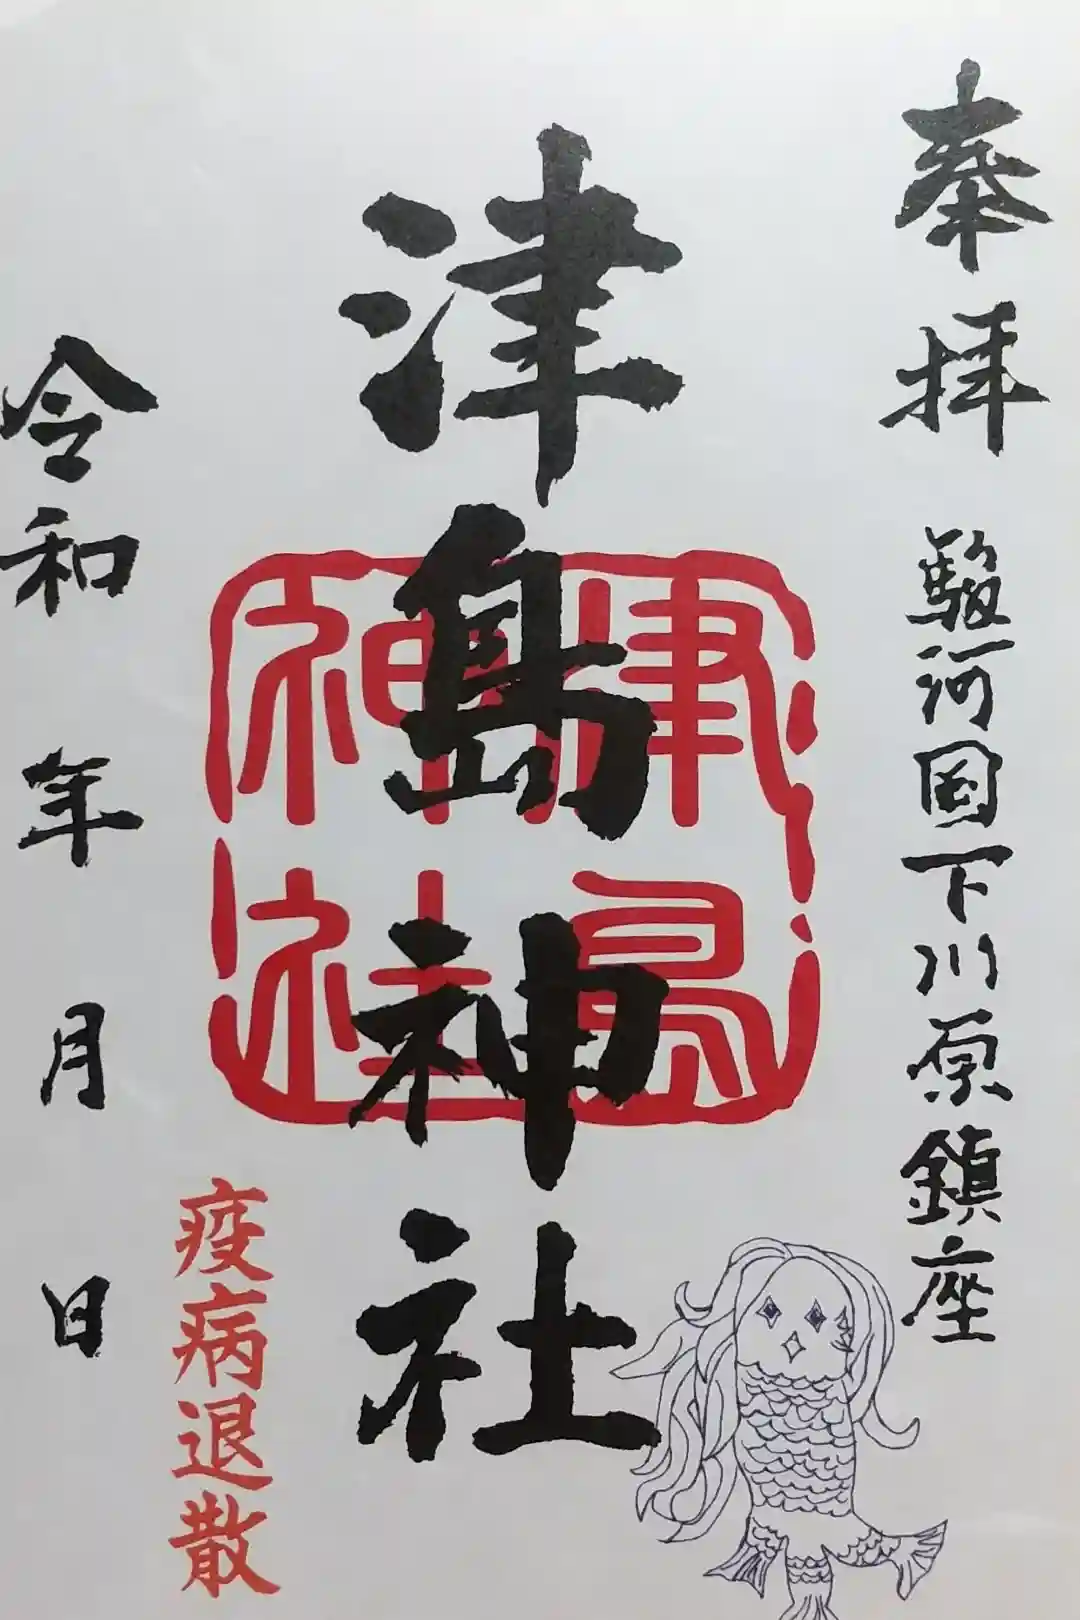 奉拝
駿河国下川原鎮座
津島神社
津島神社
疫病退散
令和 年 月 日